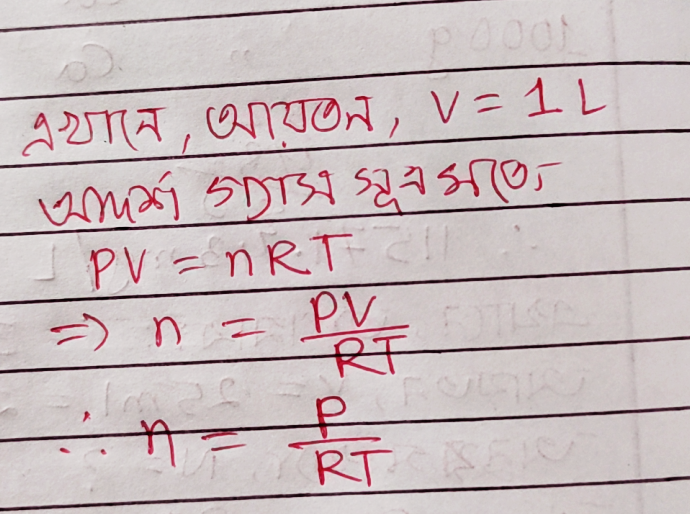 এখানে, আয়তন, V = 1 L
আদর্শ গ্যাস সূত্র মতে,
PV = nRT
⇒ n = PV/RT
∴ n = P/RT